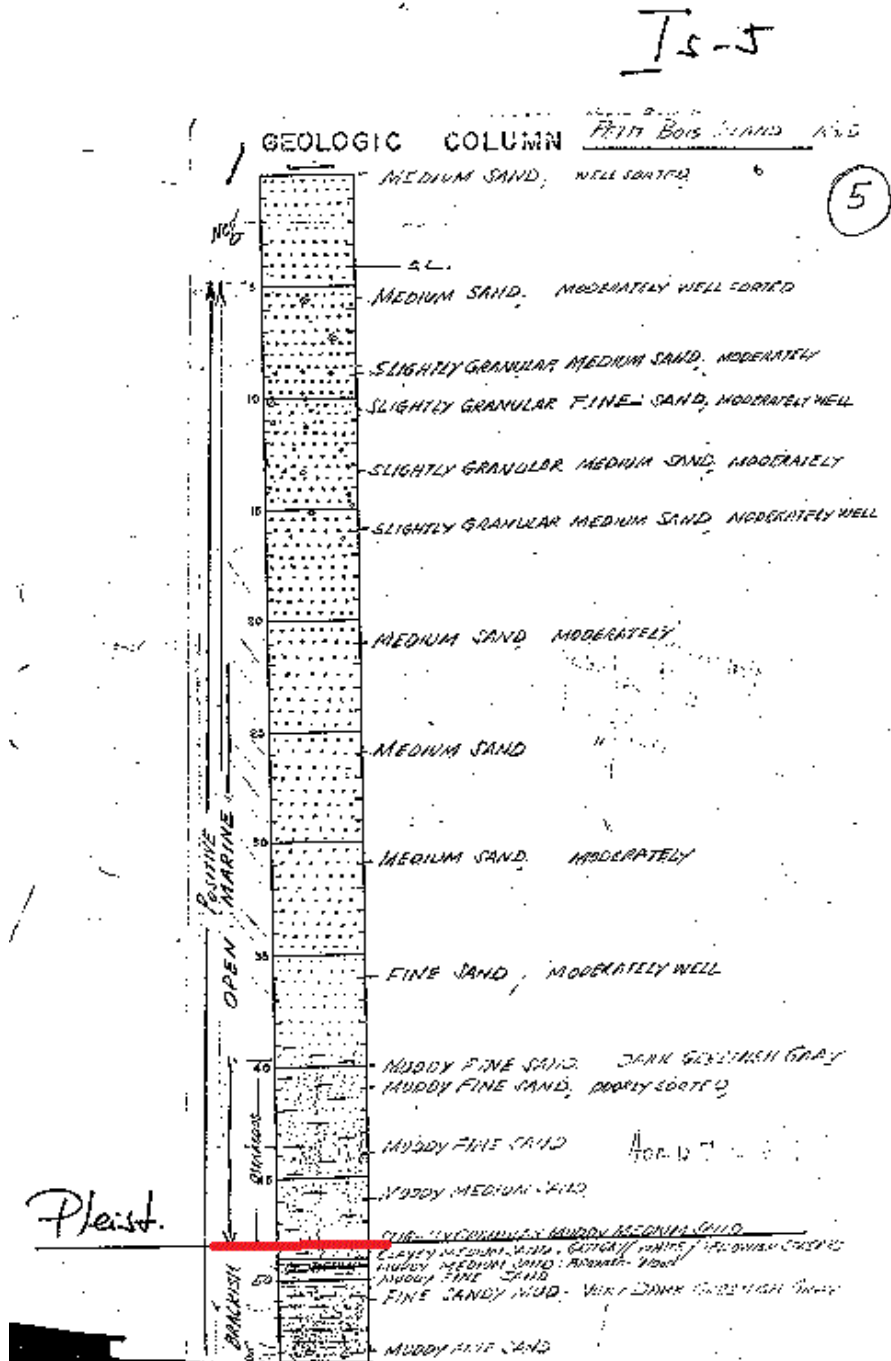 Is-5
GEOLOGIC COLUMN PETIT BOIS ISLAND
MEDIUM SAND, WELL SORTED
5
NO
S.L.
5
MEDIUM SAND, MODERATELY WELL SORTED
SLIGHTLY GRANULAR MEDIUM SAND, MODERATELY
10
SLIGHTLY GRANULAR FINE SAND, MODERATELY WELL
SLIGHTLY GRANULAR MEDIUM SAND, MODERATELY
15
SLIGHTLY GRANULAR MEDIUM SAND, MODERATELY WELL
20
MEDIUM SAND, MODERATELY
25
MEDIUM SAND
30
MEDIUM SAND, MODERATELY
POSITIVE
OPEN MARINE
35
FINE SAND, MODERATELY WELL
40
MUDDY FINE SAND. DARK GREENISH GRAY
MUDDY FINE SAND, POORLY SORTED
MUDDY FINE SAND
45
MUDDY MEDIUM SAND
Pleist.
MUDDY MEDIUM SAND
CLAYEY MEDIUM SAND
MUDDY MEDIUM SAND
MUDDY FINE SAND
50
FINE SANDY MUD - VERY DARK GREENISH GRAY
BRACKISH
MUDDY FINE SAND